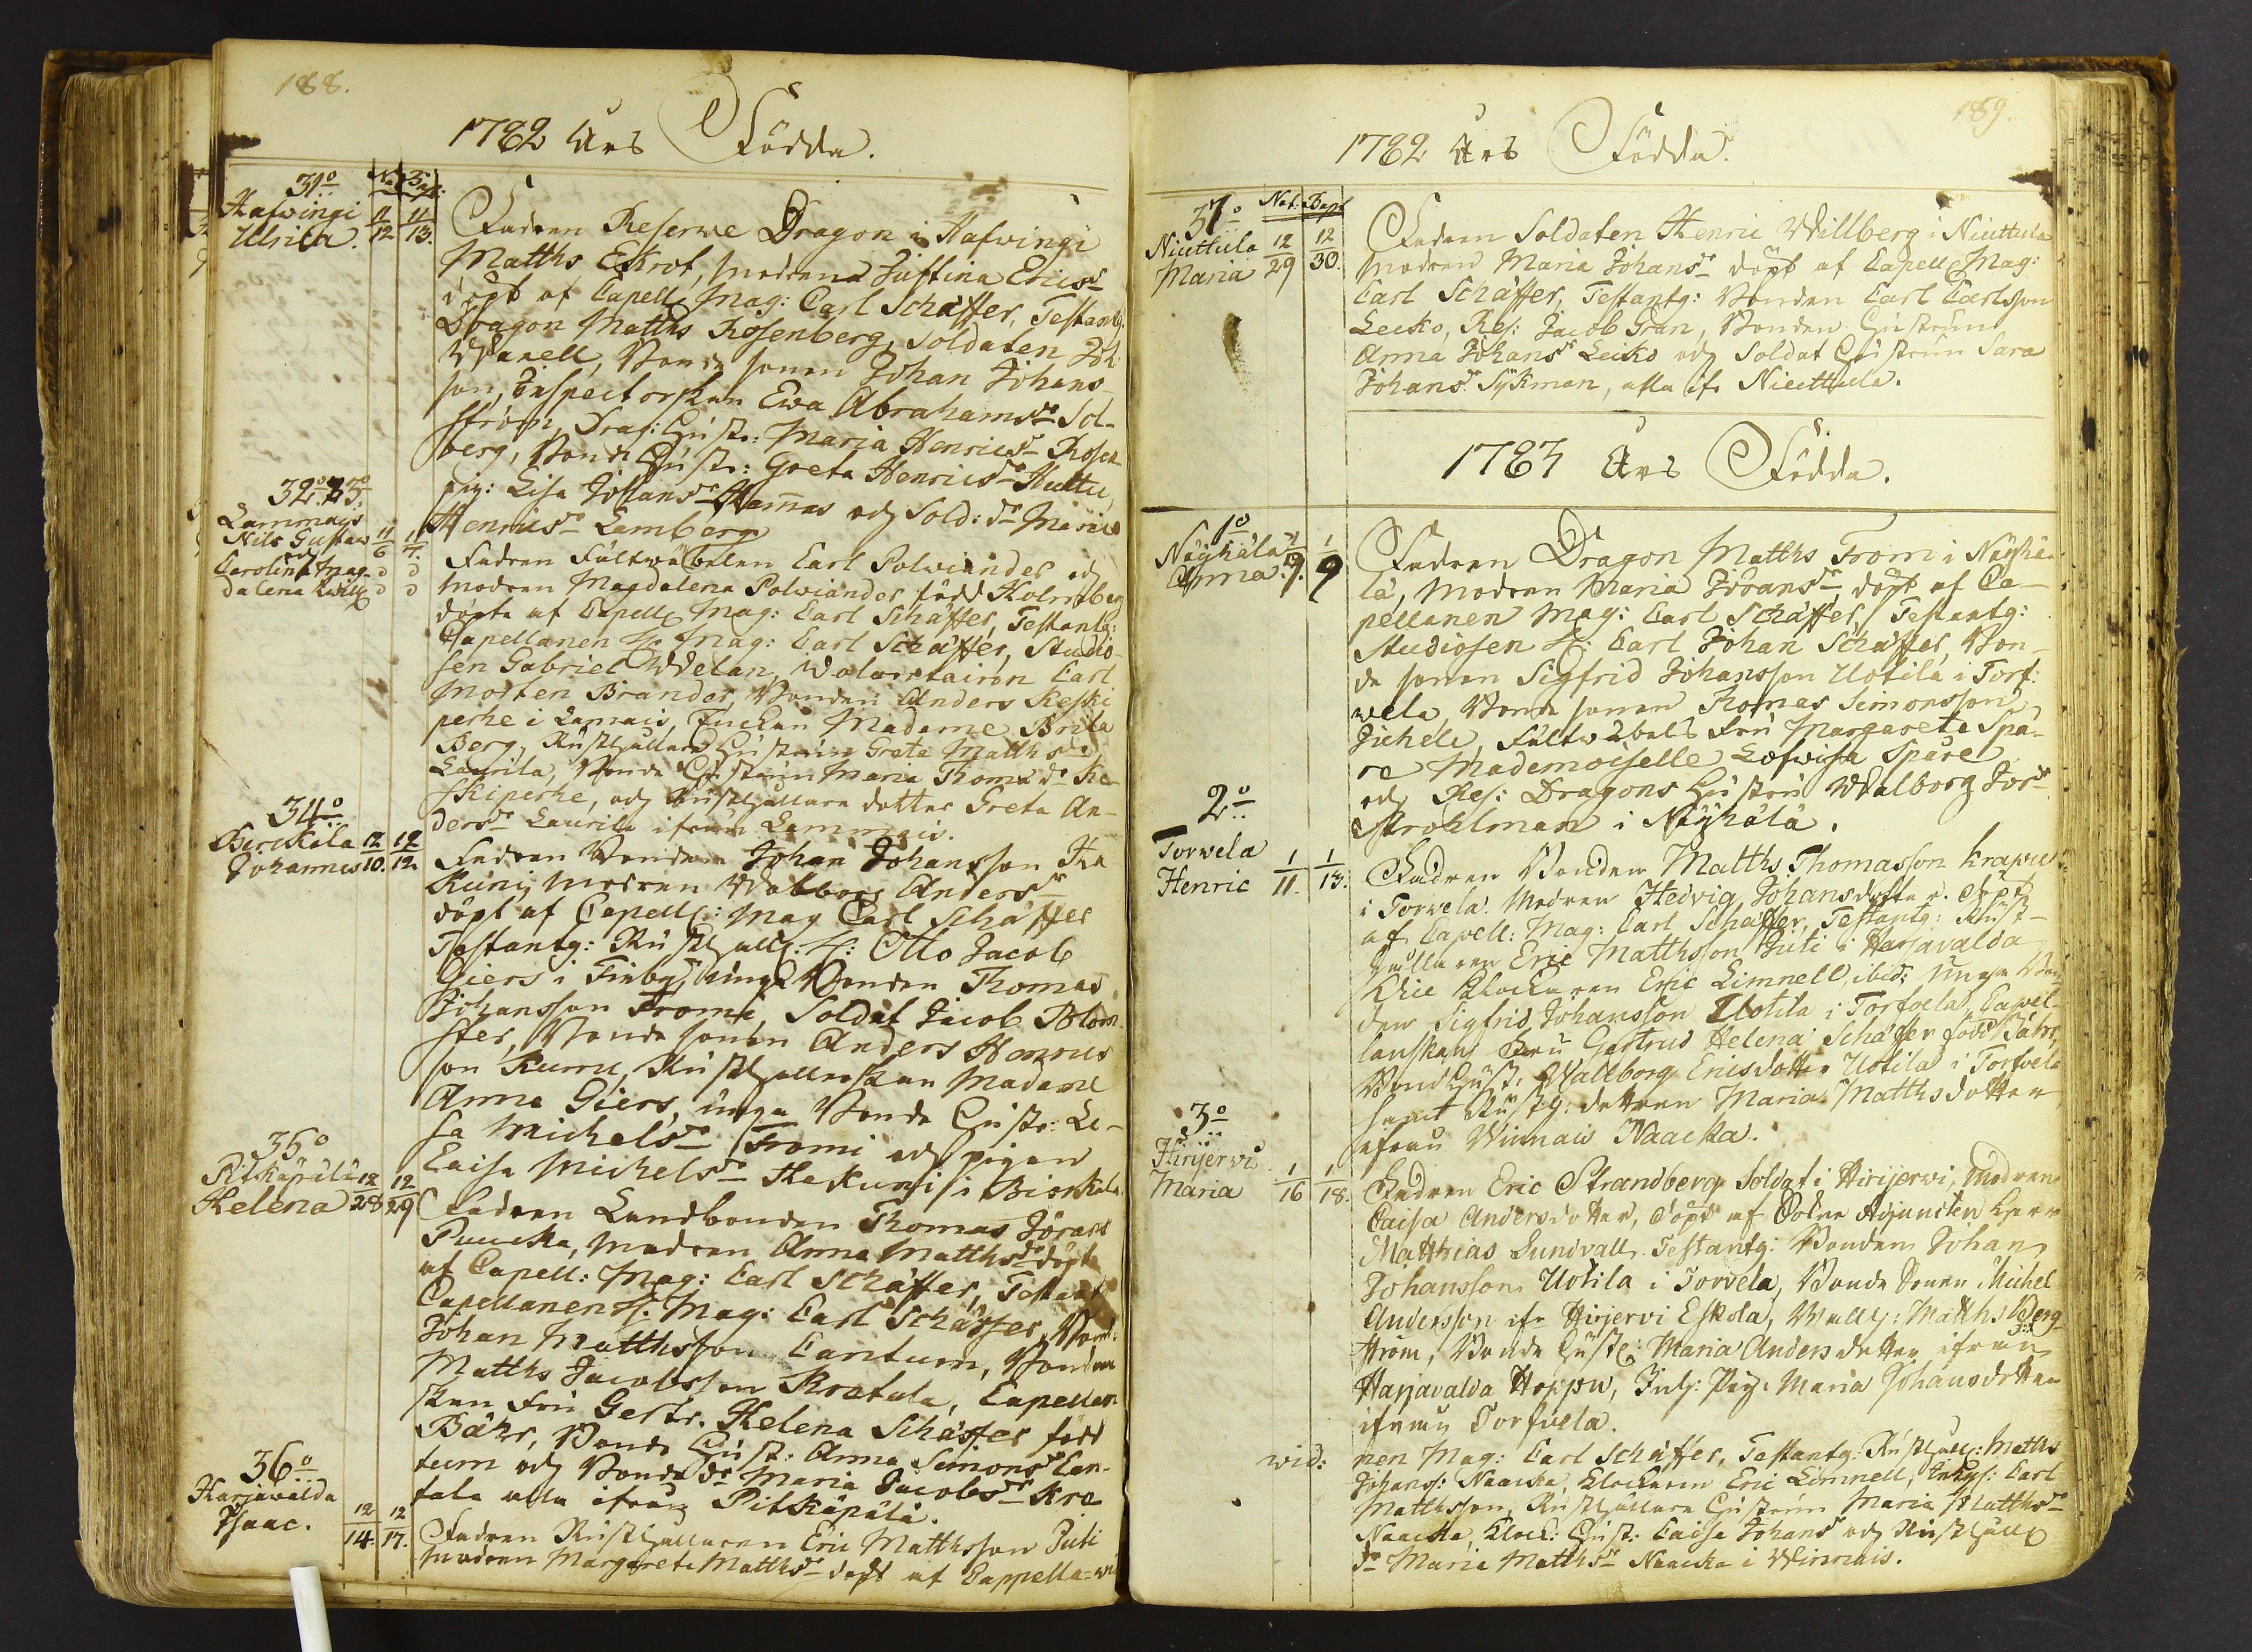 188.
1782 Års Födda.
31o
Nat. Bapt.
Hafwingi 11/12 11/13.
Ulrica.
Fadren Reserwe Dragon i Hafwingi
Matths Ekrot, modren Justina Ericsdr
döpt af Capell. Mag: Carl Schäffer, Testantg.
Dragon Matths Rosenberg, Soldaten Joh:
Warell, Bonde sonen Johan Johans
son, Inspectorskan Ewa Abrahamsdr Sol-
ström, Drag: Hustr: Maria Henricsdr Rosen
berg, Bond Hustr: Greta Henricsdr Huttu,
pig: Lisa Johansdr Hannas och Sold: dr Maria
Henricsdr Lamberg
32o 33o
Lammais
Nils Gustaw 11/6 11/7.
och
Carolina Mag- d d
dalena d d
Fadren Fältwäbelen Carl Polviander och
modren Magdalena Polviander född Holmberg
döpte af Capell. Mag: Carl Schäffer, Testantg:
Capellanen H. Mag: Carl Schäffer, Studio-
sen Gabriel Welan, Volontairen Carl
Morten Brander, Bonden Anders Keski
perhe i Lamais, Enckan Madame Brita
Berg, Rusthållare Hustrun Greta Matthsdr
Laurila, Bonde Hustrun Maria Thomædr Ke
skiperhe, och Rusthållare dotter Greta An-
dersdr Laurila ifrån Lammais.
34o
Birckala 12/10. 12/12
Johannes
Fadren Bonden Johan Johansson Ha
kuni, modren Walborg Andersdr
döpt af Capell: Mag Carl Schäffer
Testantg: Rusthåll: H: Otto Jacob
Giers i Finby, unga Bonden Thomas
Johansson Fromi, Soldat Jacob Blom
ster, Bonde sonen Anders Henrics
son Kumu, Rusthållerskan Madame
Anna Giers, unga Bonde Hustr: Li-
sa Michelsdr Fromi och pigan
Caisa Michelsdr Hakuni i Birkala.
35o
Pitkäpäla 12/28 12/29
Helena
Fadren Landbonden Thomas Jörans
Puucka, modren Anna Matthsdr döpt
af Capell: Mag: Carl Schäffer, Testantg
Capellanen H. Mag: Carl Schäffer, Bond:
Johan Matthsson Cantum, Bonden
Matths Jacobsson Kratala, Capellan
skan Fru Gertr. Helena Schäffer född
Bähr, Bonde Hust: Anna Simonsdr Can-
tum och Bonde dr Maria Jacobsdr Kra
tala alla ifrån Pitkäpäla.
36o
Harjawalda 12/14. 12/17.
Isaac.
Fadren Rusthållaren Eric Matthsson Juti
modren Margareta Matthsdr döpt af Cappella-
189.
1782 Års Födda.
37o
Nat. Bapt
Niuttula 12/29 12/30.
Maria
Fadren Soldaten Henric Willberg i Niuttula
modren Maria Johansdr döpt af Capell Mag:
Carl Schäffer, Testantg: Bonden Carl Carlsson
Leiko, Res: Jacob Gran, Bonden Hustrun
Anna Johansdr Leiko och Soldat Hustrun Sara
Johansdr Sykman, alla ifr Niuttula.
1783 Års Födda.
1o
Näyhälä 1/9. 1/9
Anna.
Fadren Dragon Matths From i Näyhä-
lä, Modren Maria Jöransdr, döpt af Ca-
pellanen Mag: Carl Schäffer, Testantg:
Studiosen H: Carl Johan Schäffer, Bon-
de sonen Sigfrid Johansson Uotila i Torf:
wela, Bonde sonen Thomas Simonsson
Juhela, Fältwäbels Fru Margareta Spå-
re Mademoiselle Lofwisa Spåre
och Res: Dragons Hustru Walborg Jorsdr
Strohlman i Näyhälä.
2o
Torwela 1/11. 1/13.
Henric
Fadren Bonden Matths Thomasson Krapu
i Torwela. Modren Hedvig Johansdotter. döpt
af Capell: Mag: Carl Schäffer, Testantg: Rust-
hållaren Eric Matthsson Juti i Harjavalda
Klockaren Eric Limnell, ibid: unga Bon
den Sigfrid Johansson Uotila i Torfvela, Capel-
lanskan Fru Gertrud Helena Schäffer född Bähr,
Bond Hust: Wallborg Ericsdotter Uotila i Torfvela
samt Rusth: dottren Maria Matthsdotter
ifrån Winnais Naacka.
3o
Hirijerwi 1/16 1/18.
Maria
Fadren Eric Strandberg Soldat i Hirijerwi, Modren
Caisa Andersdotter, döpt af Adjuncten Herr
Matthias Sundvall. Testantg: Bonden Johan
Johansson Uotila i Torvela, Bonde Sonen Michel
Andersson ifr Hirjervi Eskola, Matths Berg
ström, Bonde Hust: Maria Andersdotter ifrån
Harjavalda Hoppu, Pig: Maria Johansdotter
ifrån Torfvela.
wid: nen Mag: Carl Schäffer, Testantg: Rusthåll: Matths
Johans: Naacka, Klockaren Eric Limnell, Carl
Matthsson, Rusthållare Hustrun Maria Matthsdr
Naacka, Klock: Hust: Caisa Johansdr och Rusthåll
dr Maria Matthsdr Naacka i Winnais.